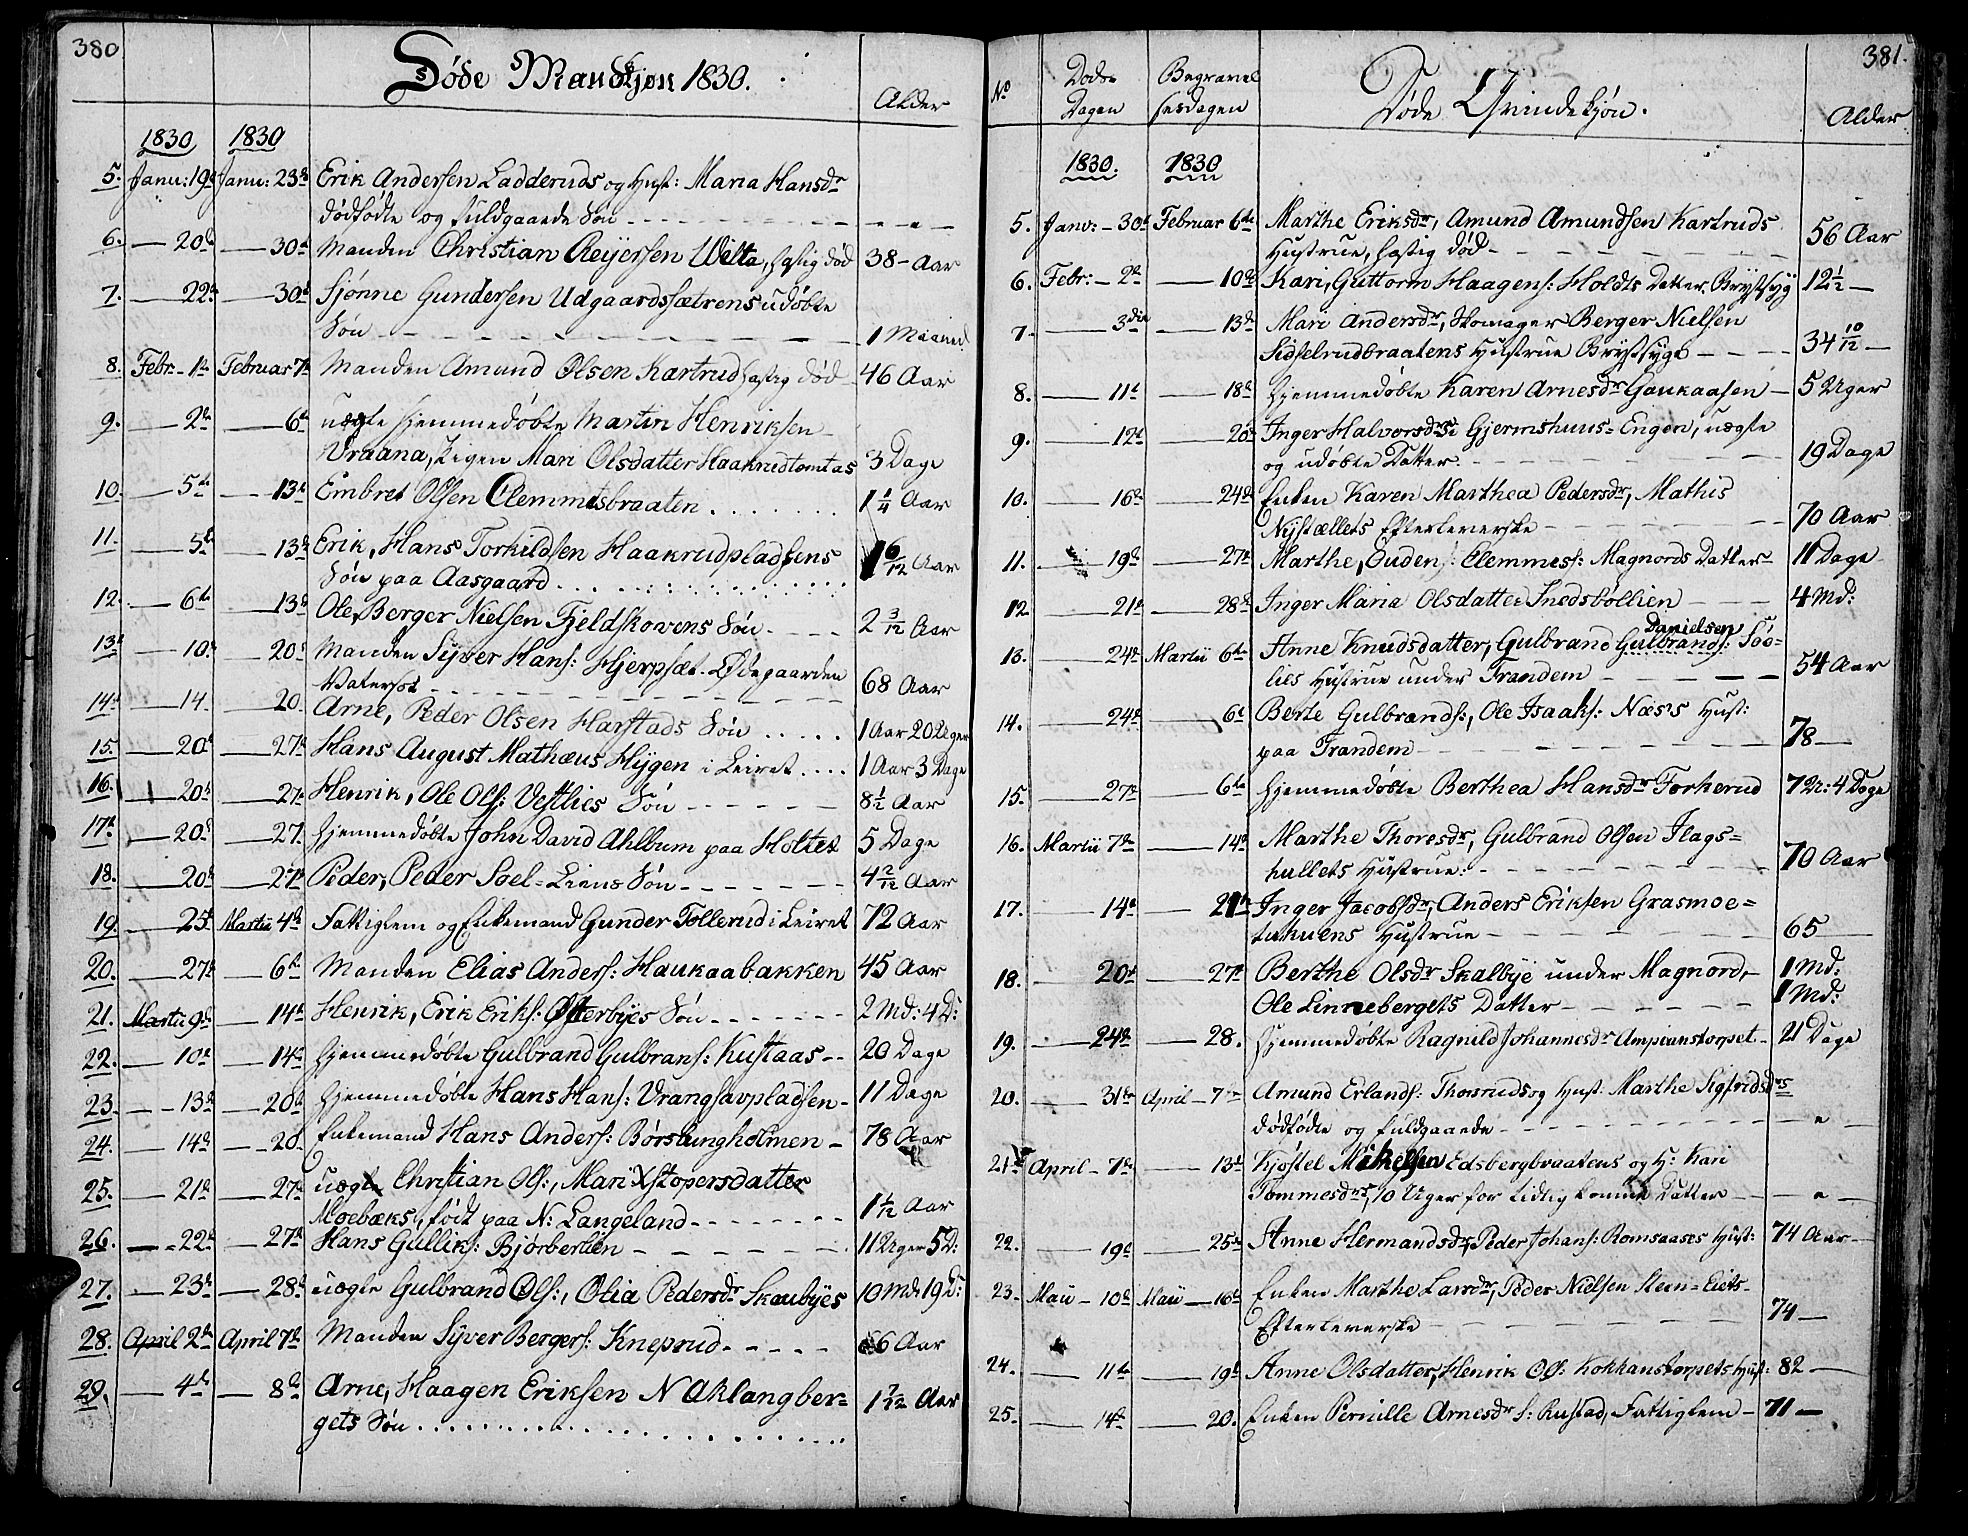 380
Døde Mandkjøn 1830.
Alder
1830 1830
5. Janu: 19d Janu: 23d Erik Andersen Ladderuds og Hust: Maria Hansdr
dødfødte og fuldgaaede Søn - - -
6. — 20d — 30d Manden Christian Reyersen Welta, hastig død 38 - Aar
7. — 22d — 30d Sjønne Gundersen Udgaardssætrens udøbte
Søn - - - 1 Maaned
8. Febr. - 1te Februar 7d Manden Amund Olsen Kartrud hastig død 46 Aar
9. — 2de — 6te uægte hjemmedøbte Martin Henriksen
Vraana, Pigen Mari Olsdatter Haakrudtomtas 3 Dage
10. — 5te — 13d Embret Olsen Clemmetsbraaten 1 1/4 Aar
11. — 5te — 13d Erik, Hans Torkildsen Haakrudpladsens
Søn paa Aasgaard 1 6/12 Aar
12. — 6te — 13d Ole, Berger Nielsen Fjeldskovens Søn 2 3/12 Aar
13d — 10d — 20d Manden Syver Hans: Hjerpset-Ødegaarden
Vatersot 68 Aar
14d — 14 — 20 Arne, Peder Olsen Harstads Søn 1 Aar 20 Uger
15 — 20d — 27d Hans August Mathæus Hygen i Leiret 1 Aar 3 Dage
16. — 20d — 27d Henrik, Ole Ols: Vestlies Søn 8 1/2 Aar
17d — 20d — 27. hjemmedøbte John David Ahlbum paa Holtet 5 Dage
18. — 20d — 27d Peder, Peder Soel-Liens Søn 4 2/12 Aar
19. — 25d Martii 4d Fattiglem og Enkemand Gunder Tollerud i Leiret 72 Aar
20. — 27d — 6te Manden Elias Anders: Haukaabakken 45 Aar
21. Martii 9d — 14d Henrik, Erik Eriks: Østerbyes Søn 2 Md: 4 D:
22. — 10d — 14d hjemmedøbte Gulbrand Gulbrans: Kustaas 20 Dage
23. — 13d — 20d hjemmedøbte Hans Hans: Vrangsavpladsen 11 Dage
24. — 14d — 20. Enkemand Hans Anders: Børslungholmen 78 Aar
25. — 21d — 27d uægte Christian Ols:, Mari Xstopersdatter
Moebæks, født paa N: Langeland 1 1/12 Aar
26. — 22d — 27d Hans Gulliks: Bjørberlien 11 Uger 5 D:
27. — 23d — 28d uægte Gulbrand Ols:, Olia Pedersdr Skaubyes 10 Md: 19 D:
28. April 2d April 7d Manden Syver Bergers: Kneprud 66 Aar
29. — 4d — 8d Arne, Haagen Eriksen N Aklangber=
gets Søn 1 7/12 Aar
381.
No Døds Begravel
Dagen sesdagen Døde Qvindekjøn. Alder
1830. 1830
5. Janu: - 30d Februar 6te Marthe Eriksdr, Amund Amundsen Kartruds
Hustrue, hastig død 56 Aar
6. Febr: - 2d — 10de Kari, Guttorm Haagens: Holdts Datter. Brystsyg 12 1/2 —
7 — 3die — 13d Mari Andersdr, Skomager Berger Nielsen
Sidselrudbraatens Hustrue Brystsyge 34 10/12 —
8. — 11d — 18d hjemmedøbte Karen Arnesdr Gaukaasen 5 Uger
9. — 12d — 20d Inger Halvorsdr i Gjermshuus=Engen, uægte
og udøbte Datter. 19 Dage
10. — 16d — 24d Enken Karen Marthea Pedersdr, Mathis
Nystællets Efterleverske 70 Aar
11. — 19d — 27d Marthe, Ouden: Clemmets: Magnords Datter 11 Dage
12 — 21d — 28d Inger Maria Olsdatter Snedsbøllien 4 Md:
Danielsen
13. — 24d Martii 6te Anne Knudsdatter, Gulbrand Gulbrands: Søe=
lies Hustrue under Trandem 54 Aar
14. — 24d — 6d Berte Gulbrands:, Ole Isaaks: Næs's Hust:
paa Trandem 78 —
15. — 27d — 6te hjemmedøbte Berthea Hansdr Torkerud 7 U: 4 Dage
16. Martii 7de — 14d Marthe Thoresdr, Gulbrand Olsen Flags=
kullets Hustrue: 70 Aar
17. — 14d — 21d Inger Jacobsdr, Anders Eriksen Grasmoe=
tukuens Hustrue 65 —
18. — 20d — 27d Berthe Olsdr Skalbye under Magnord, 1 Md:
Ole Linnebergets Datter 1 Md:
19. — 24d — 28. hjemmedøbte Ragnild Johannesdr Ampianstorpet 21 Dage
20. — 31te April - 7de Amund Erlands: Thorsruds og Hust. Marthe Sigfridsdrs
dødfødte og fuldgaaede
21d April - 7d — 13d Kjøstel Mikelsen Edsbergbraatens og H: Kari
Tommesdrs, 10 Uger for tidlig komne Datter
22. — 19d — 25d Anne Hermandsdr, Peder Johans: Romsaases Hust: 74 Aar
23. Maii - 10d Maii — 16d Enken Marthe Larsdr, Peder Nielsen Steen-Eiets
Efterleverske 74 —
24. — 11te — 19d Anne Olsdatter, Henrik Ols: Kokkanstorpets Hust: 82 —
25. — 14d — 20. Enken Pernille Arnesdr S: Rustad, Fattiglem 71 —